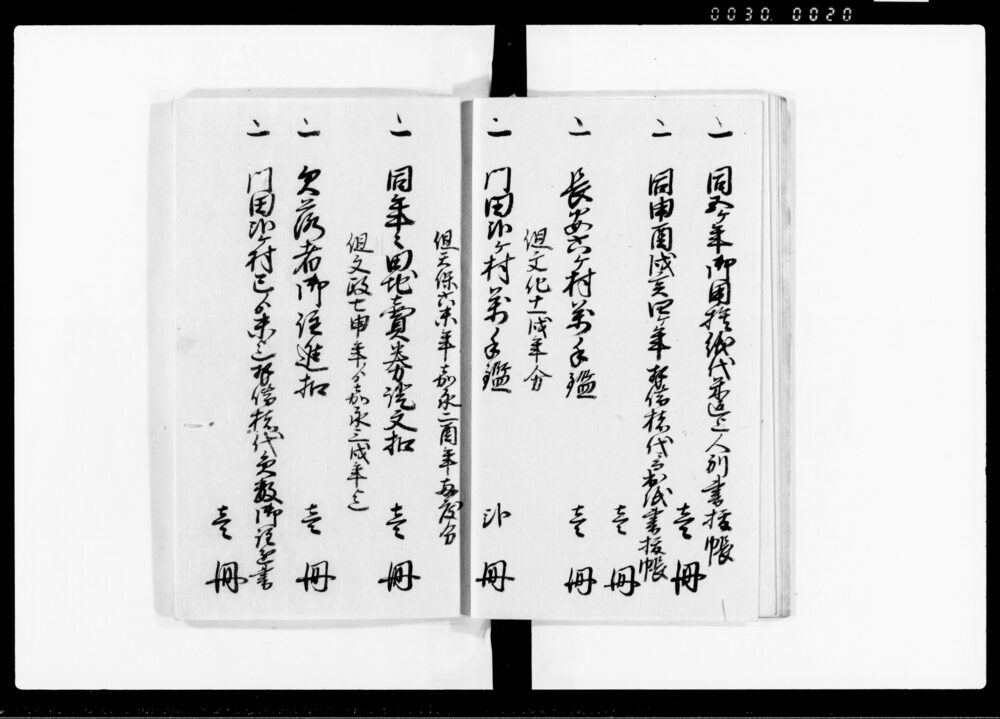 0030. 0020
一 同五ヶ年御用捨紙代 上人別書抜帳 壱冊
一 同申酉戌亥四ヶ年拝借楮代 紙書抜帳 壱冊
一 長安六ヶ村萬手鑑 壱冊
但文化十一戌年分
一 門田弐ヶ村萬手鑑 弐冊
但天保六未年嘉永二酉年両度分
一 同年々田地賣券証文扣 壱冊
但文政七申年ゟ嘉永三戌年迄
一 欠落者御注進扣 壱冊
一 門田弐ヶ村巳ゟ未迄拝借楮代員数御注進書 壱冊